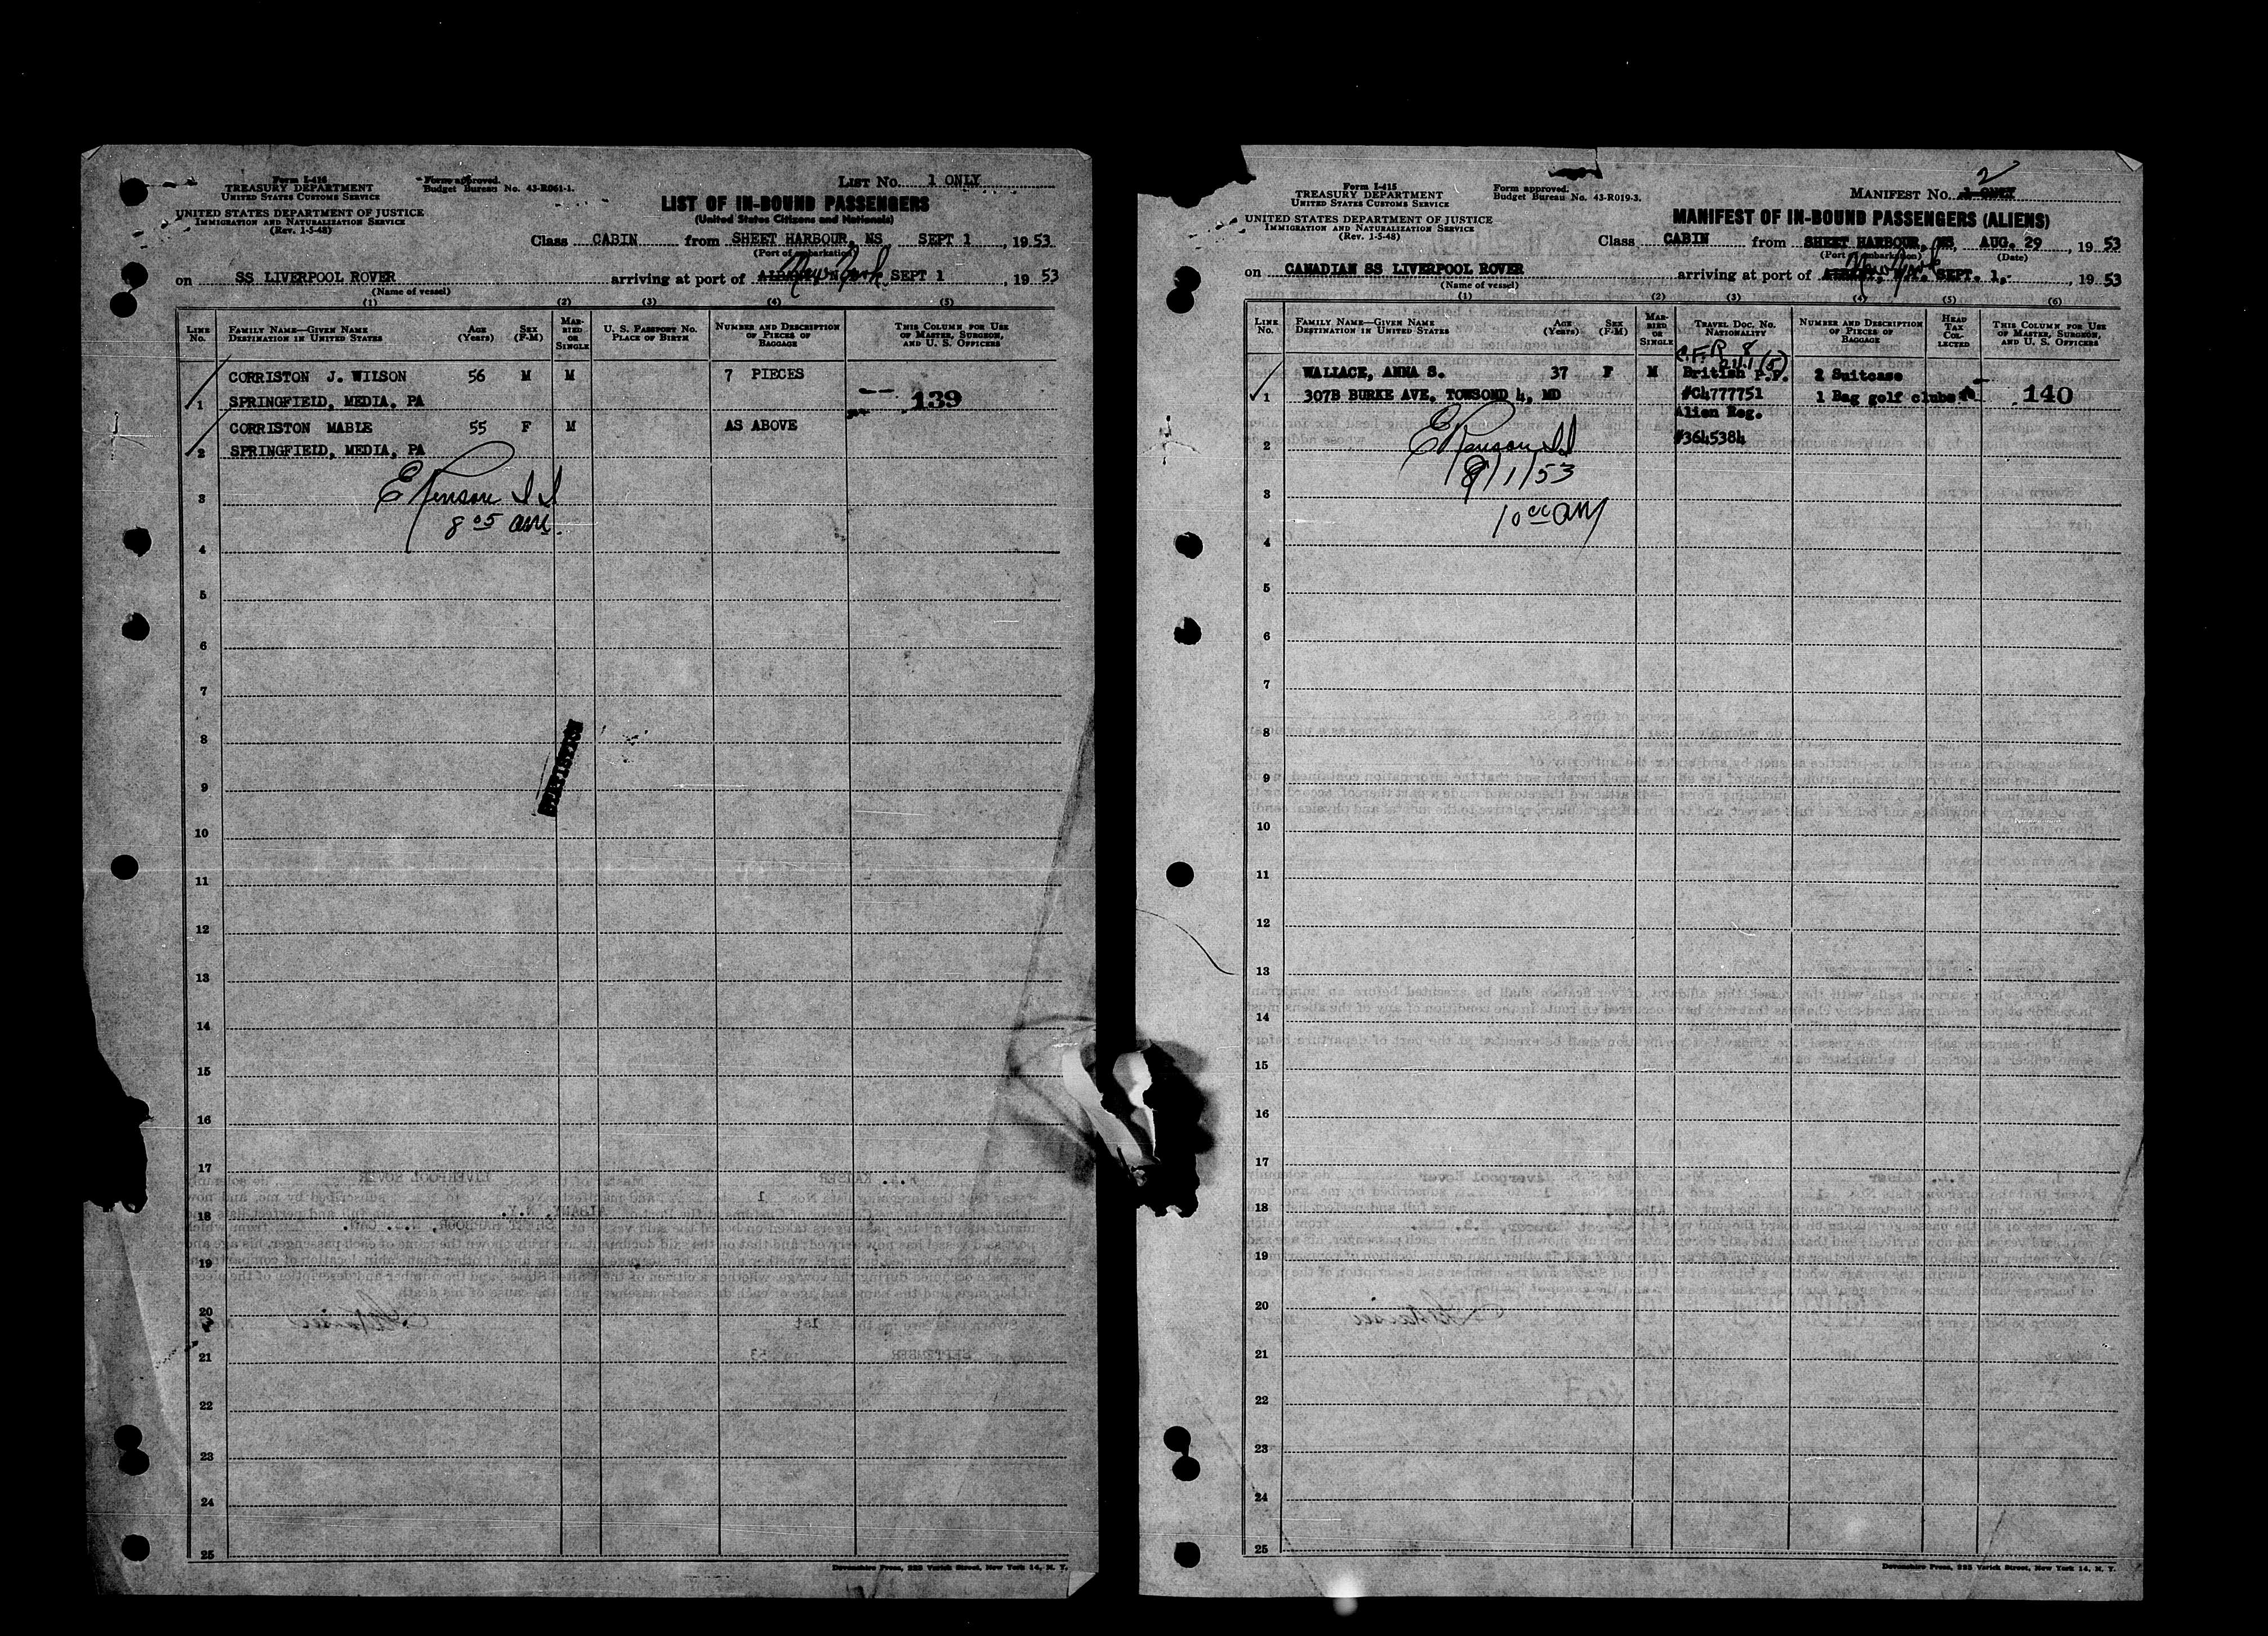 Form I-416
TREASURY DEPARTMENT
UNITED STATES CUSTOMS SERVICE
UNITED STATES DEPARTMENT OF JUSTICE
IMMIGRATION AND NATURALIZATION SERVICE
(Rev. 1-5-48)
Form approved.
Budget Bureau No. 43-R061-1.
LIST No. 1 ONLY
LIST OF IN-BOUND PASSENGERS
(United States Citizens and Nationals)
Class CABIN from SHEET HARBOUR, NS SEPT 1, 1953
(Port of embarkation)
on SS LIVERPOOL ROVER arriving at port of New York SEPT 1, 1953
(Name of vessel)
(1) (2) (3) (4) (5)
LINE No. FAMILY NAME—GIVEN NAME DESTINATION IN UNITED STATES AGE (Years) SEX (F-M) MARRIED OR SINGLE U. S. PASSPORT No. PLACE OF BIRTH NUMBER AND DESCRIPTION OF PIECES OF BAGGAGE THIS COLUMN FOR USE OF MASTER, SURGEON, AND U. S. OFFICERS
CORRISTON J. WILSON 56 M M 7 PIECES
1 SPRINGFIELD, MEDIA, PA 139
CORRISTON MABLE 55 F M AS ABOVE
2 SPRINGFIELD, MEDIA, PA
3
8 05 am.
4
5
6
7
8
9
10
11
12
13
14
15
16
17
18
19
20
21
22
23
24
25
Devonshire Press, 225 Varick Street, New York 14, N. Y.
Form I-415
TREASURY DEPARTMENT
UNITED STATES CUSTOMS SERVICE
UNITED STATES DEPARTMENT OF JUSTICE
IMMIGRATION AND NATURALIZATION SERVICE
(Rev. 1-5-48)
Form approved.
Budget Bureau No. 43-R019-3.
2
MANIFEST No. 1 ONLY
MANIFEST OF IN-BOUND PASSENGERS (ALIENS)
Class CABIN from SHEET HARBOUR, NS, AUG. 29, 1953
(Port of embarkation) (Date)
on CANADIAN SS LIVERPOOL ROVER arriving at port of New York SEPT. 1, 1953
(Name of vessel)
(1) (2) (3) (4) (5) (6)
LINE No. FAMILY NAME—GIVEN NAME DESTINATION IN UNITED STATES AGE (Years) SEX (F-M) MARRIED OR SINGLE TRAVEL DOC. No. NATIONALITY NUMBER AND DESCRIPTION OF PIECES OF BAGGAGE HEAD TAX COLLECTED THIS COLUMN FOR USE OF MASTER, SURGEON, AND U. S. OFFICERS
C.F.R. 8
WALLACE, ANNA S. 37 F M British P.P. 2 Suitcase
1 307B BURKE AVE, TOWSOND 4, MD #C4777751 1 Bag golf clubs 140
Alien Reg.
2 #3645384
9/1/53
3
10 00 AM
4
5
6
7
8
9
10
11
12
13
14
15
16
17
18
19
20
21
22
23
24
25
Devonshire Press, 225 Varick Street, New York 14, N. Y.